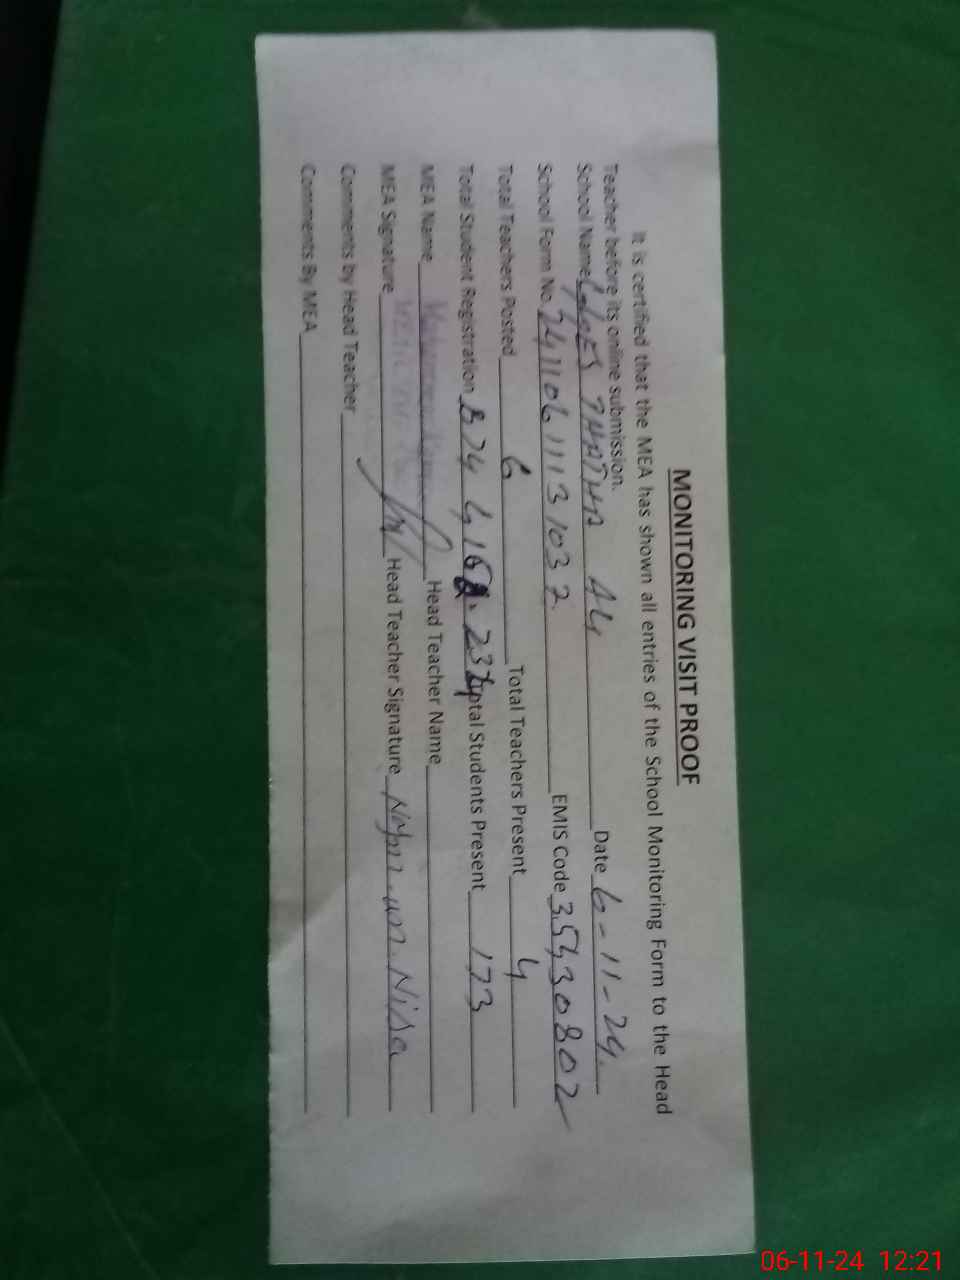 MONITORING VISIT PROOF
It is certified that the MEA has shown all entries of the School Monitoring Form to the Head
Teacher before its online submission.
School Name THATHA 44 Date 6-11-24.
School Form No. 24110611131032 EMIS Code 35430802
Total Teachers Posted 6 Total Teachers Present 4
Total Student Registration B 74 G 162. Total Students Present 173
MEA Name Head Teacher Name
MEA Signature Head Teacher Signature Nisa
Comments by Head Teacher
Comments By MEA
06-11-24 12:21